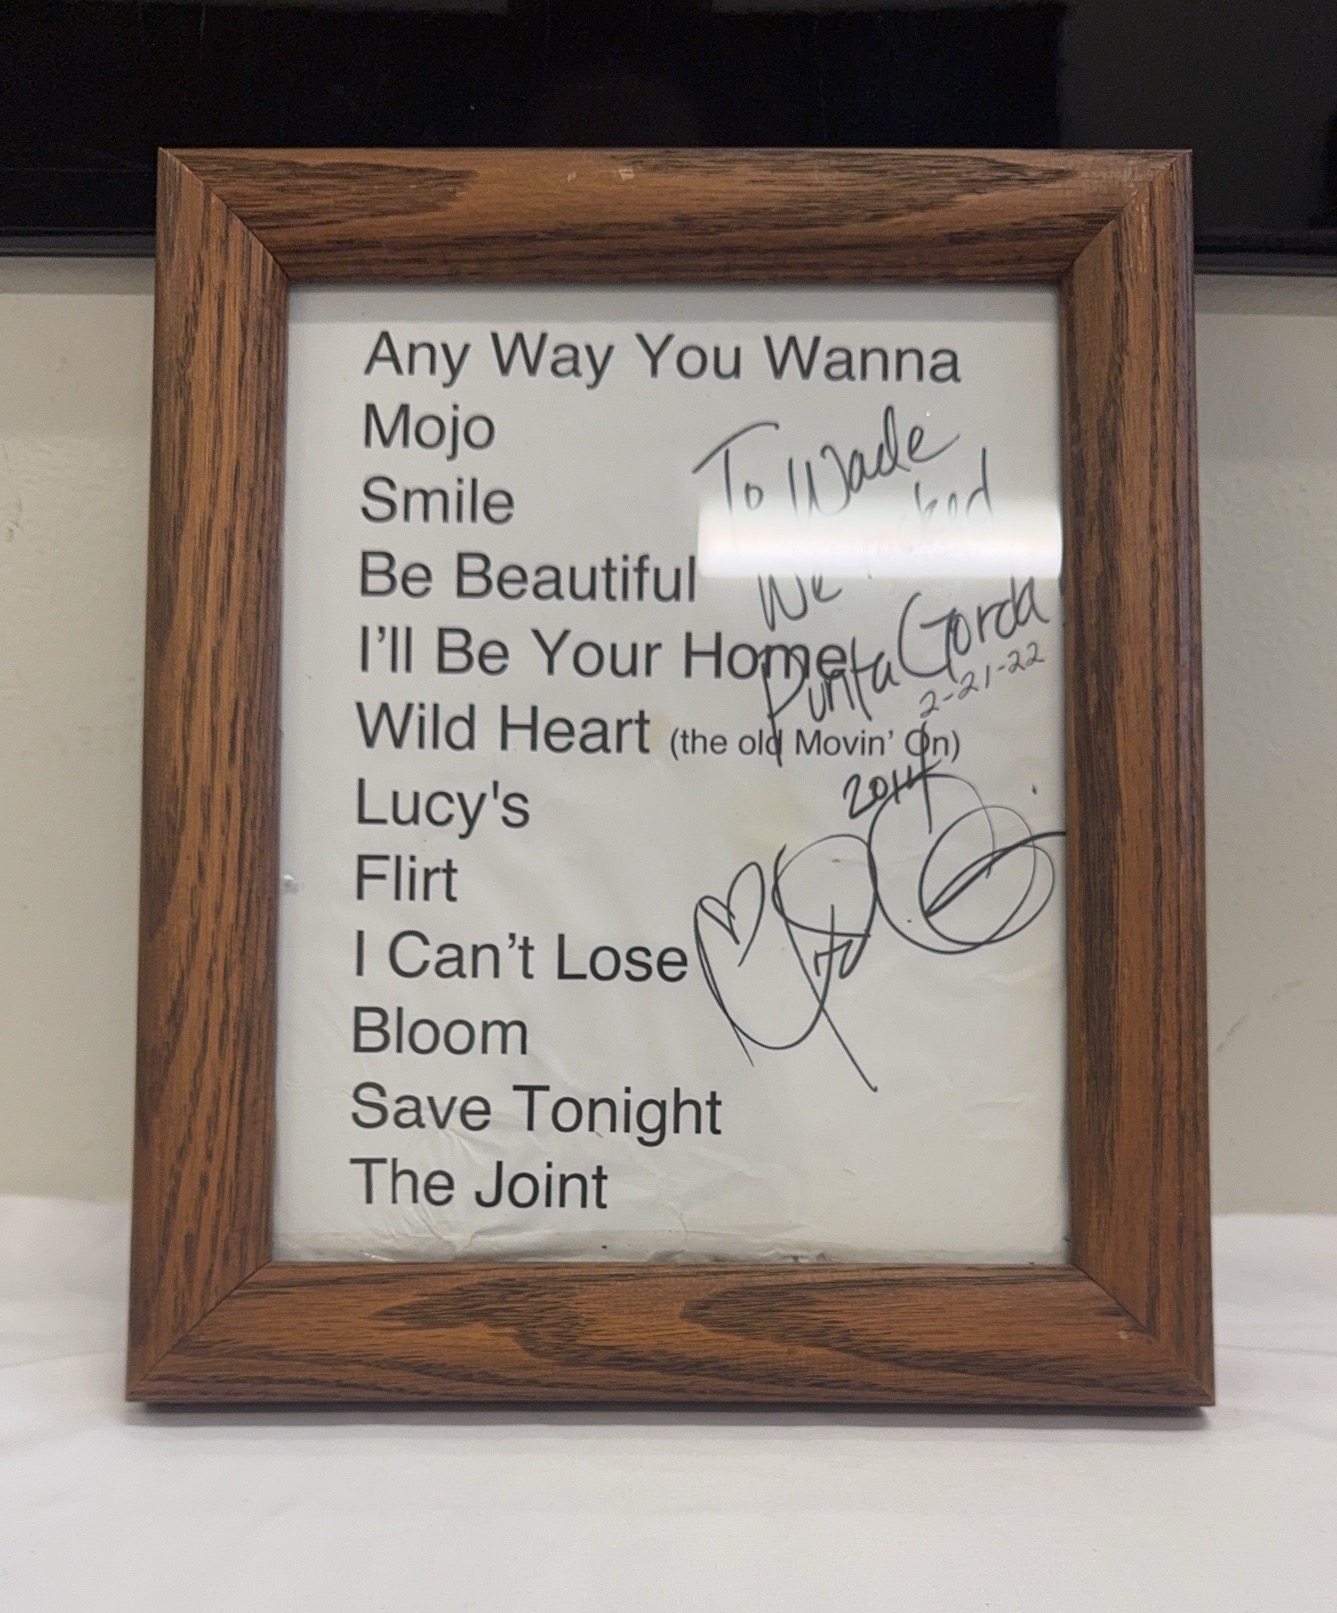 Any Way You Wanna
Mojo
Smile
Be Beautiful
I'll Be Your Home
Wild Heart (the old Movin' On)
Lucy's
Flirt
I Can't Lose
Bloom
Save Tonight
The Joint
To Wade
We rocked
Punta Gorda!
2-21-22
2014